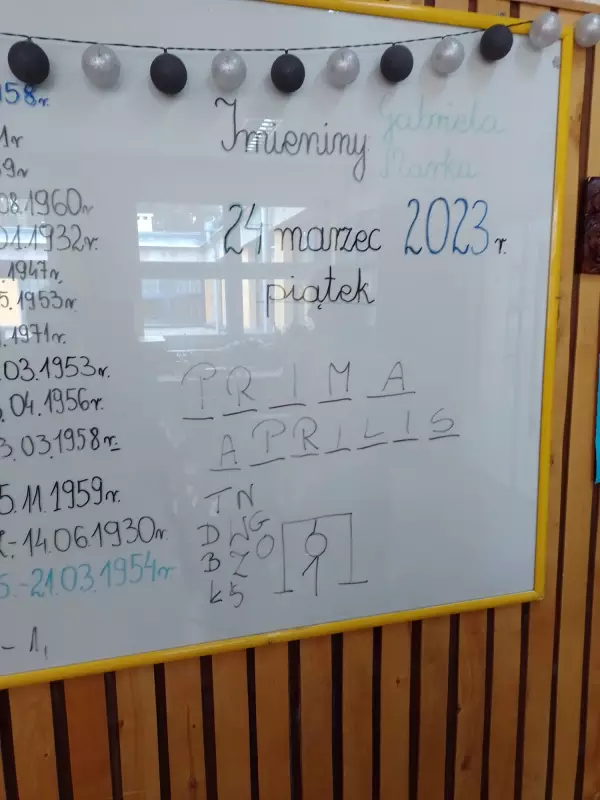 58r.
1r
9r
08.1960r
01.1932r.
.1947r,
5.1953r
.1971r.
.03.1953r.
.04.1956r.
3.03.1958r.
5.11.1959r.
-14.061930r.
.-21.03.1954r.
- 1,
Imieniny Gabriela
Marka
24 marzec 2023r.
piątek
PRIMA
APRILIS
T N
D W G
B Z O
K S